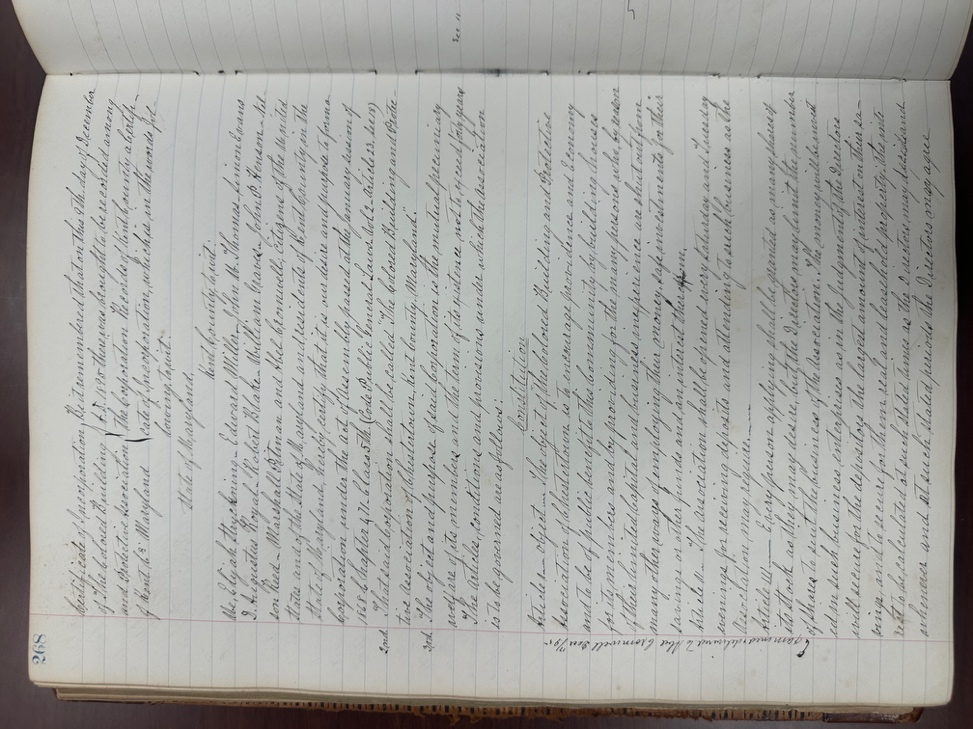 268
Certificate of Incorporation
of the Colored Building
and Protective Association
of Kent Co Maryland
Be it remembered that on this 9th day of December
A.D. 1905 there was brought to be recorded among
the Corporation Records of Kent County a Certifi-
cate of Incorporation, which is in the words fol-
lowing to wit:
State of Maryland
Kent County to wit.
We Elijah they King - Edward Miller - John W. Thomas, Simon Evans
I. Augustus Boyer - Robert Blake - William Graves - John P. Hinson - Nel-
son Reed - Marshall Pitman and Abe Cromwell, citizens of the United
States and of the State of Maryland and residents of Kent County, in the
State of Maryland, hereby certify that it is our desire and purpose to form a
corporation under the act of Assembly passed at the January session of
1868 Chapter 471 Class 5th (Code Public General Laws Vol. 2 Article 23 sec 19)
2nd That said corporation shall be called "The Colored Building and Protec-
tive Association of Chestertown, Kent County, Maryland".
3rd The object and purpose of said corporation is the mutual pecuniary
welfare of its members and the term of its existence not to exceed forty years
The articles, conditions and provisions under which the Association
is to be governed are as follows:
Constitution
Article - Object - The object of the Colored Building and Protective
Association of Chestertown is to encourage providence and Economy
and to be of public benefit to this Community by building houses
for its members and by providing for the many persons who by reason
of their limited capital and business inexperience are shut out from
many other ways of employing their money, safe investments for their
savings or other funds and interest thereon
Article - The Association shall be opened every Thursday and Tuesday
evenings for receiving deposits and attending to such business as the
Association may require
Article III - Each person applying shall be granted as many shares of
its stock as they may desire, but the Directors may limit the number
of shares to suit the business of the Association. The money will be invest
ed in such business enterprises as in the judgment of the Directors
will secure for the depositors the largest amount of interest on their sa-
vings and to secure for the owners of land leasehold property, the inte
rest to be calculated at such stated times as the Directors may decide and
in manner and at such stated periods the Directors may agree
Examined & delivered to Abe Cromwell Dec 11/05